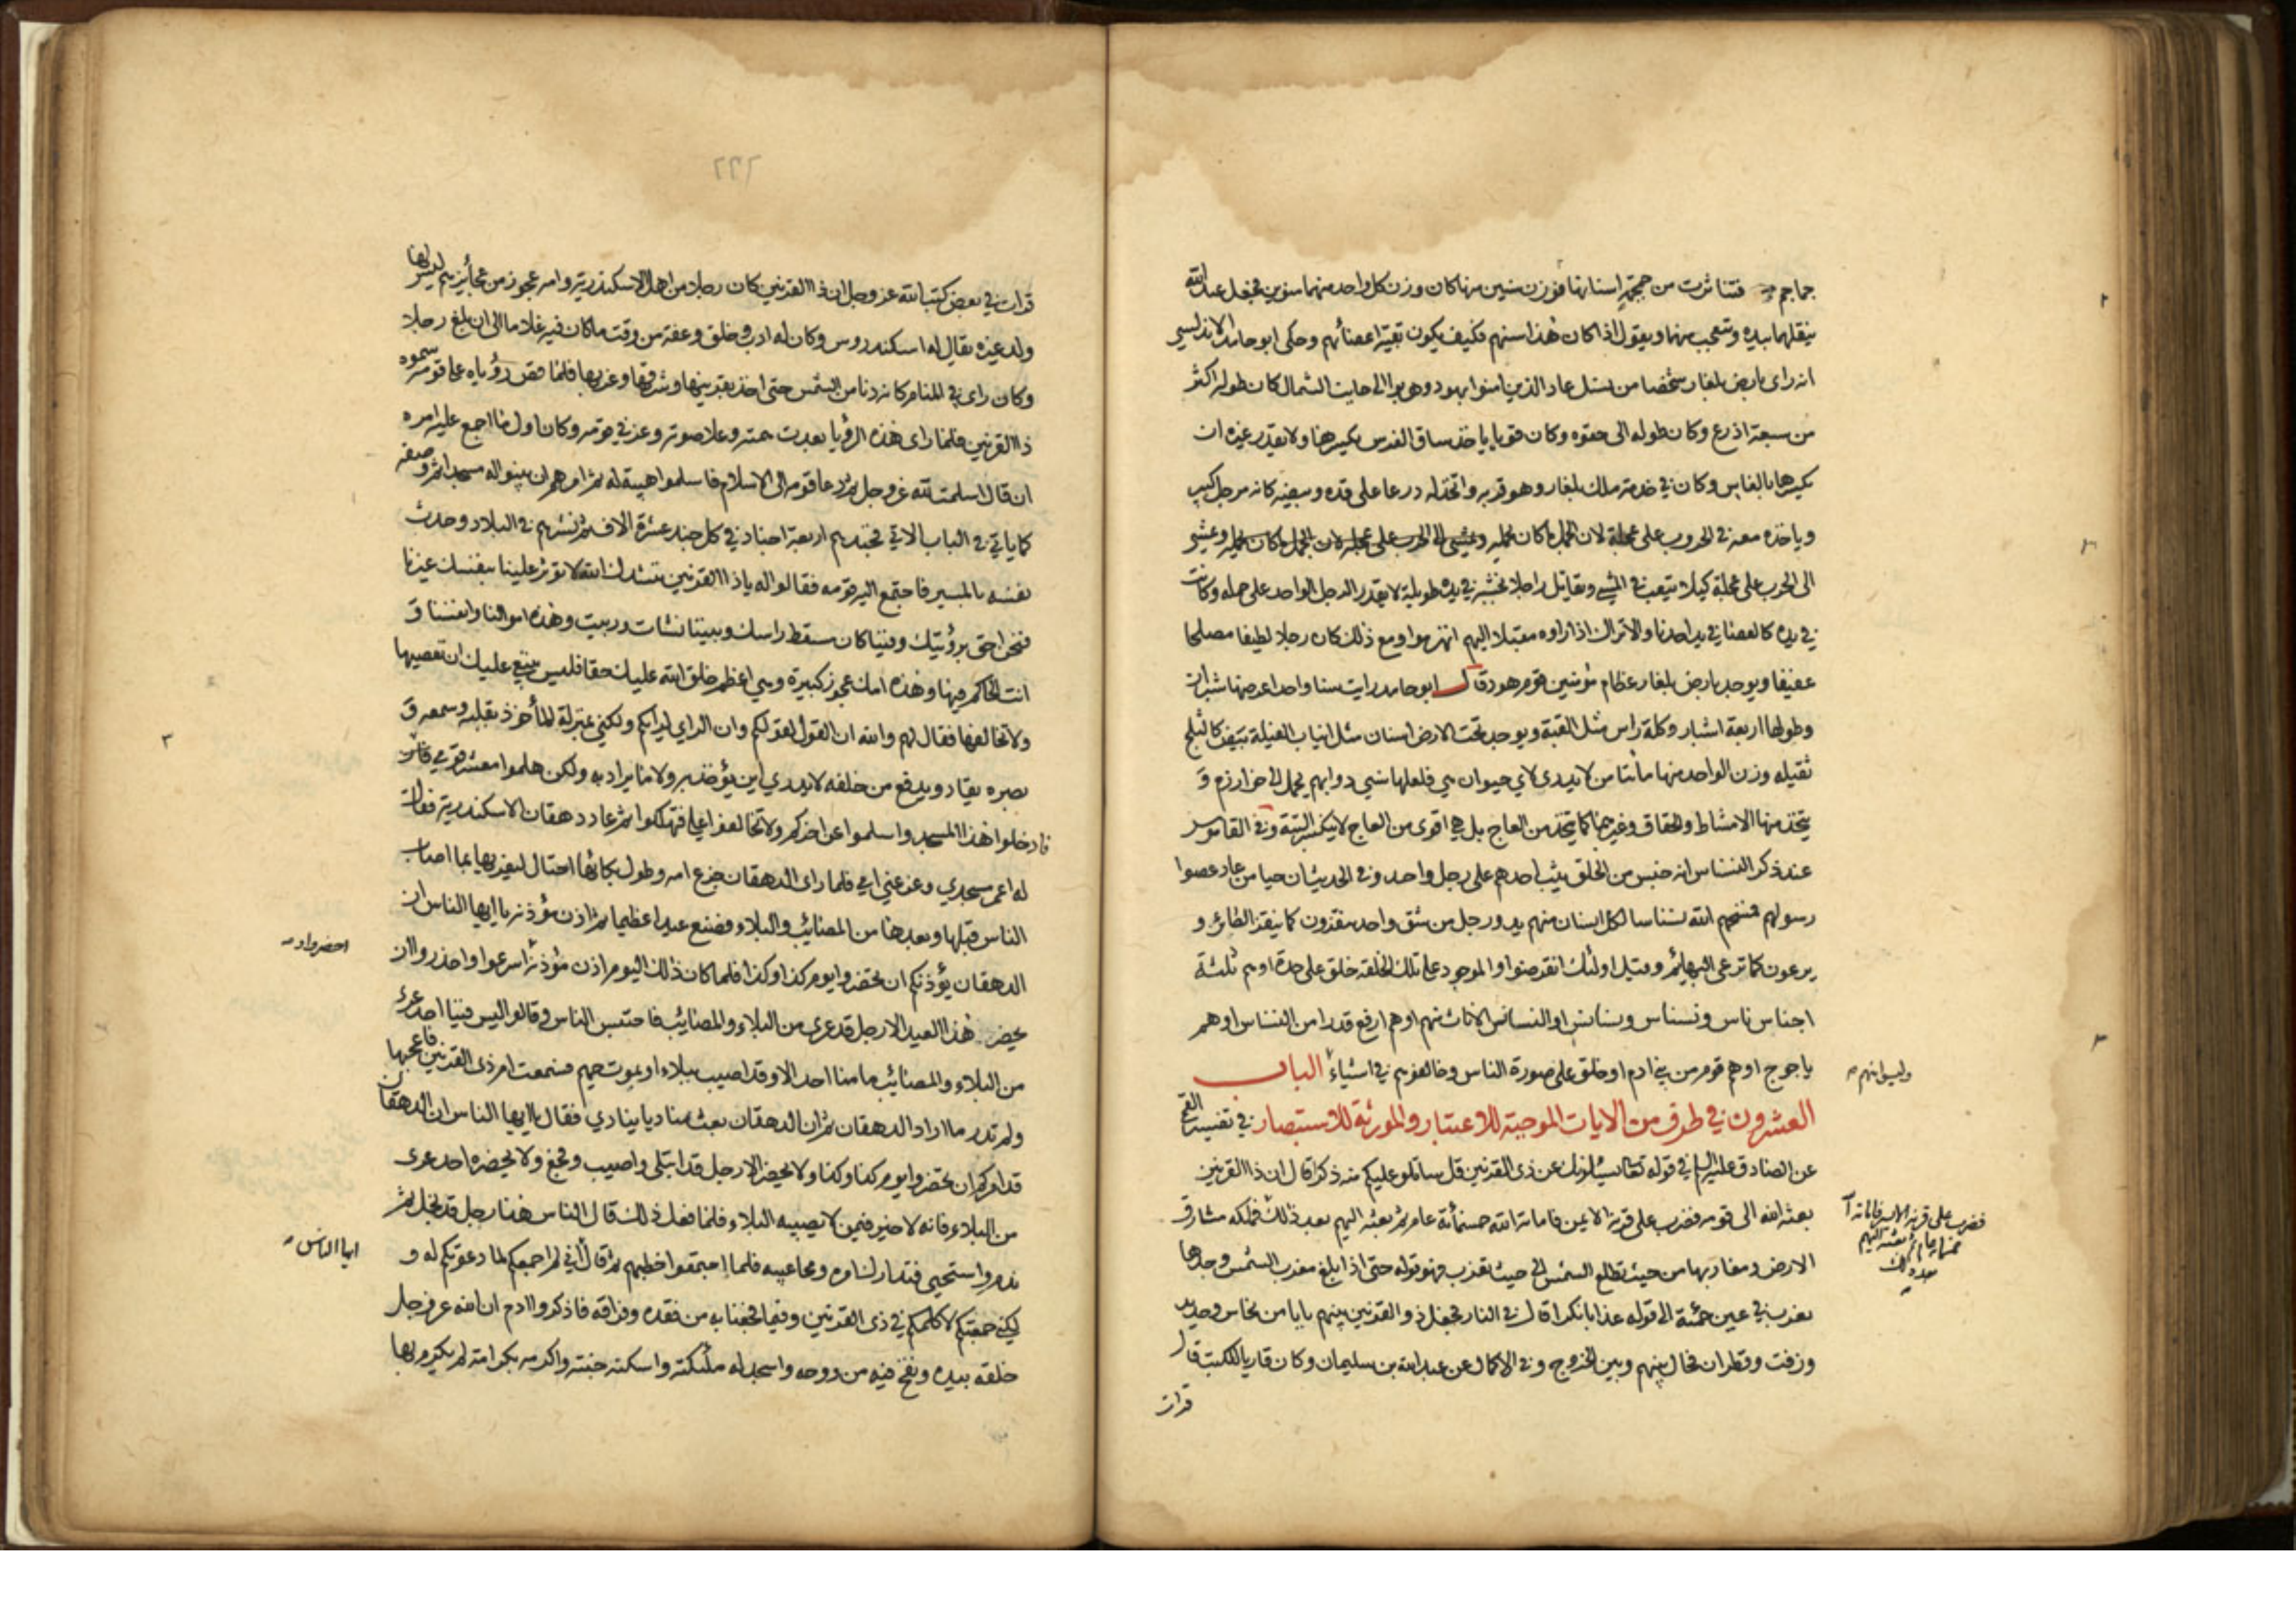 جماجم فتناثرت من جمجمة اسنانها فوزن سنين منها كان وزن كل واحد منهما منوين فجعل عبد الله
ينقلهما بيده ويتعجب منهما ويقول اذا كان هذا سنهم فكيف يكون بقية اعضائهم وحكى ابو حامد الاندلسي
انه راى بارض بلغار شخصا من نسل عاد الذين امنوا بهود وهربوا الى جانب الشمال كان طوله اكثر
من سبعة اذرع وكان طوله الى حقوه وكان قويا ياخذ ساق الفرس يكسرها ولا يقدر غيره ان
يكسرها بالفاس وكان في خدمة ملك بلغار وهو قربه واتخذ له درعا على قده وبيضة كانه مرجل كبير
وياخذه معه في الحروب على عجلة لان الجمل ما كان يحمله ويمشي الى الحرب على عجلة لان الجمل ما كان يحمله ويمشي
الى الحرب على عجلة كيلا يتعب في المشي ويقاتل راجلا بخشبة في يده طويلة لا يقدر الرجل الواحد على حمله وكانت
في يده كالعصا في يد احدنا والاتراك اذا راوه مقبلا اليهم انهزموا ومع ذلك كان رجلا لطيفا مصلحا
عفيفا ويوجد بارض بلغار عظام مؤمنين قوم هود قال ابو حامد رايت سنا واحدا عرضها شبران
وطولها اربعة اشبار وكلة راس مثل القبة ويوجد تحت الارض اسنان مثل انياب الفيلة بيض كالثلج
ثقيله وزن الواحد منها مائتا من لا يدرى لاي حيوان هي فلعلها سني دوابهم يحمل الى خوارزم و
يتخذ منها الامشاط والحقاق وغيرهما كما يتخذ من العاج بل هي اقوى من العاج لا ينكسر البتة وفي القاموس
عند ذكر النسناس انه جنس من الخلق يثب احدهم على رجل واحد وفي الحديث ان حيا من عاد عصوا
رسولهم فمسخهم الله نسناسا لكل انسان منهم يد ورجل من شق واحد ينقزون كما ينقز الطائر و
يرعون كما ترعى البهائم وقيل اولئك انقرضوا والموجود على تلك الخلقة خلق على حدة او هم ثلثة
اجناس ناس ونسناس ونسانس او النسانس الاناث منهم او هم ارفع قدرا من النسناس او هم
ياجوج او هم قوم من بني ادم او خلق على صورة الناس وخالفوهم في اشياء الباب
وليسوا منهم
العشرون في طرف من الايات الموجبة للاعتبار والمورثة للاستبصار في تفسير القمي
عن الصادق عليه السلام في قوله تعالى يسئلونك عن ذي القرنين قل ساتلو عليكم منه ذكرا قال ان ذا القرنين
بعثه الله الى قومه فضرب على قرنه الايمن فاماته الله خمسمائة عام ثم بعثه اليهم بعد ذلك فملكه مشارق
فضرب على قرنه الايسر فاماته
خمسمائة عام ثم بعثه اليهم
بعد ذلك
الارض ومغاربها من حيث تطلع الشمس الى حيث تغرب فهو قوله حتى اذا بلغ مغرب الشمس وجدها
تغرب في عين حمئة الى قوله عذابا نكرا قال في النار فجعل ذو القرنين بينهم بابا من نحاس وحديد
وزفت وقطران فحال بينهم وبين الخروج وفي الاكمال عن عبد الله بن سليمان وكان قاريا للكتب قال
قرات
قرات في بعض كتب الله عز وجل ان ذا القرنين كان رجلا من اهل الاسكندرية وامه عجوز من عجائزهم ليس لها
ولد غيره يقال له اسكندروس وكان له ادب وخلق وعفة من وقت ما كان فيه غلاما الى ان بلغ رجلا
وكان راى في المنام كانه دنا من الشمس حتى اخذ بقرنيها وشرقها وغربها فلما قص رؤياه على قومه سموه
ذا القرنين فلما راى هذه الرؤيا بعدت همته وعلا صوته وعز في قومه وكان اول ما اجمع عليه امره
ان قال اسلمت لله عز وجل ثم دعا قومه الى الاسلام فاسلموا هيبة له ثم امرهم ان يبنوا له مسجدا ثم وصفه
كما ياتي في الباب الاتي فجندهم اربعة اجناد في كل جند عشرة الاف ثم نشرهم في البلاد وحدث
نفسه بالمسير فاجتمع اليه قومه فقالوا له يا ذا القرنين ننشدك الله لا تؤثر علينا بنفسك غيرنا
فنحن احق برؤيتك وفينا كان مسقط راسك وبيننا نشات وربيت وهذه اموالنا وانفسنا و
انت الحاكم فيها وهذه امك عجوز كبيرة وهي اعظم خلق الله عليك حقا فليس ينبغي عليك ان تعصيها
ولا تخالفها فقال لهم والله ان القول لقولكم وان الراي لرايكم ولكني بمنزلة الماخوذ بقلبه وسمعه و
بصره يقاد ويدفع من خلفه لا يدري اين يؤخذ به ولا ما يراد به ولكن هلموا معشر قومي
فادخلوا هذا المسجد واسلموا عن اخركم ولا تخالفوا علي فتهلكوا ثم دعا دهقان الاسكندرية فقال
له اعمر مسجدي وعز عني امي فلما راى الدهقان جزع امه وطول بكائها احتال ليعزيها بما اصاب
الناس قبلها وبعدها من المصائب والبلاء فصنع عيدا عظيما ثم اذن مؤذنه يا ايها الناس ان
الدهقان يؤذنكم ان تحضروا يوم كذا وكذا فلما كان ذلك اليوم اذن مؤذنه اسرعوا واحذروا ان
احضروا
يحضر هذا العيد الا رجل قد عري من البلاء والمصائب فاحتبس الناس وقالوا ليس فينا احد عرى
من البلاء والمصائب ما منا احد الا وقد اصيب ببلاء او بموت حميم فسمعت ام ذي القرنين فاعجبها
ولم تدر ما اراد الدهقان ثم ان الدهقان بعث مناديا ينادي فقال يا ايها الناس ان الدهقان
قد امركم ان تحضروا يوم كذا وكذا ولا يحضر الا رجل قد ابتلي واصيب وفجع ولا يحضره احد عرى
من البلاء فانه لا خير فيمن لا يصيبه البلاء فلما فعل ذلك قال الناس هذا رجل قد بخل ثم
ندم واستحيى فتدارك امره ومحا عيبه فلما اجتمعوا خطبهم ثم قال اني لم اجمعكم لما دعوتكم له و
ايها الناس
لكني جمعتكم لاكلمكم في ذي القرنين وفيما فجعنا به من فقده وفراقه فاذكروا ادم ان الله عز وجل
خلقه بيده ونفخ فيه من روحه واسجد له ملئكته واسكنه جنته واكرمه بكرامة لم يكرم بها